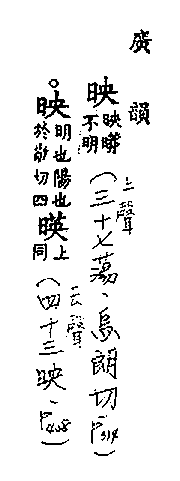 廣韻
映 映𥉻不明（三十七蕩、烏朗切 P314）
上聲
○映 明也陽也於敬切四 暎 上同（四十三映、P408）
去聲